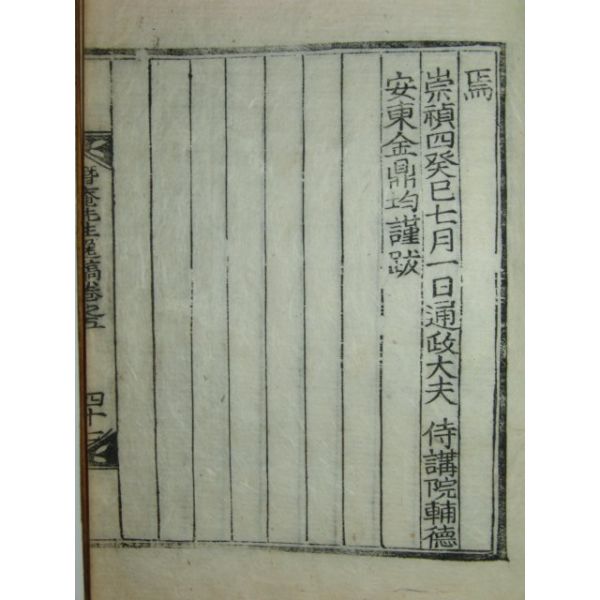 焉
崇禎四癸巳七月一日通政大夫 侍講院輔德
安東金鼎均謹跋
先生逸稿卷之五
四十